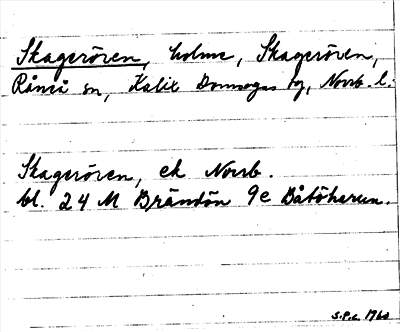 Skagerören, holme, Skagerören,
Råneå sn, Kalix Domsagas tg, Norrb. l.
Skagerören, ek Norrb.
bl. 24 M Brändön 9e Båtöharun.
S.P.C. 1960